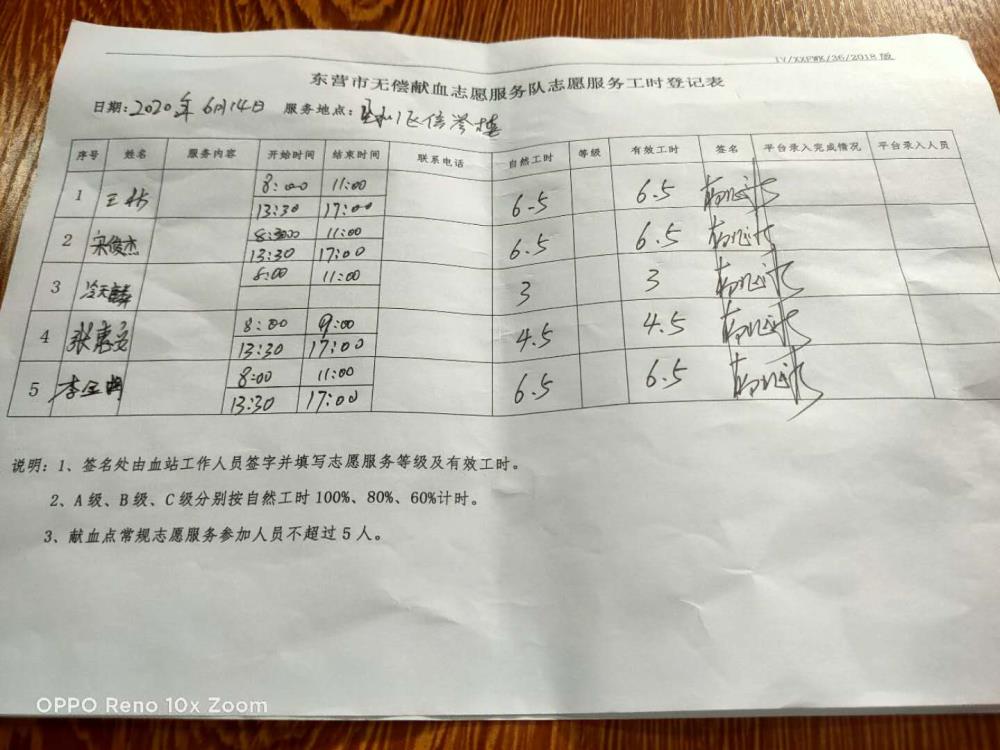 东营市无偿献血志愿服务队志愿服务工时登记表
日期：2020年6月14日 服务地点：区信誉楼
序号 姓名 服务内容 开始时间 结束时间 联系电话 自然工时 等级 有效工时 签名 平台录入完成情况 平台录入人员
1 王 8:00 11:00 6.5 6.5
13:30 17:00
2 宋俊杰 8:00 11:00 6.5 6.5
13:30 17:00
3 冷天麟 8:00 11:00 3 3
4 张惠 8:00 9:00 4.5 4.5
13:30 17:00
5 李 8:00 11:00 6.5 6.5
13:30 17:00
说明：1、签名处由血站工作人员签字并填写志愿服务等级及有效工时。
2、A级、B级、C级分别按自然工时100%、80%、60%计时。
3、献血点常规志愿服务参加人员不超过5人。
OPPO Reno 10x Zoom